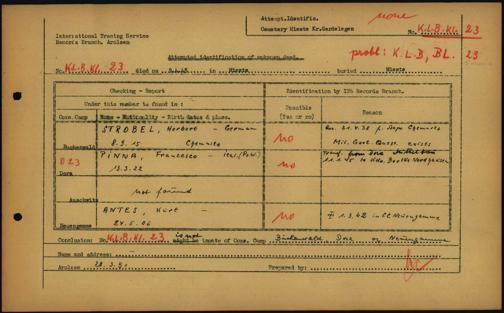 Attempt.Identific.
none
Cemetery Mieste Kr.Gardelegen
No. K.L.B.Kl. 23
International Tracing Service
Records Branch, Arolsen
probl: K.L-B, BL. 23
Attempted identification of unknown dead.
No. K.L.B.Kl. 23 died on in Mieste buried Mieste
Checking - Report
Identification by ITS Records Branch.
Under this number is found in :
Possible
(yes or no)
Reason
Conc.Camp
Name - Nationality - Birth dates & place.
STROBEL, Herbert - German
8.9.15 Chemnitz
Buchenwald
no
PINNA, Francesco -
13.3.22
D 23
Dora
no
not found
Auschwitz
ANTES, Kurt -
24.5.06
Neuengamme
no
1.3.42 in CC Neuengamme
Conclusion: No. K.L.B.Kl. 23 might be inmate of Conc. Camp Buchenwald, Dora or Neuengamme
Name and address:
Arolsen
Prepared by: